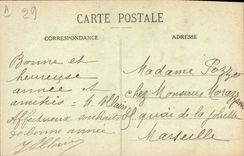 A 29
CARTE POSTALE
CORRESPONDANCE
ADRESSE
Bonne et
heureuse
année et
amitiés
Affectueux souhaits
de bonne année
Madame Pozzo
chez Monsieur
8 quai de la Joliette
Marseille